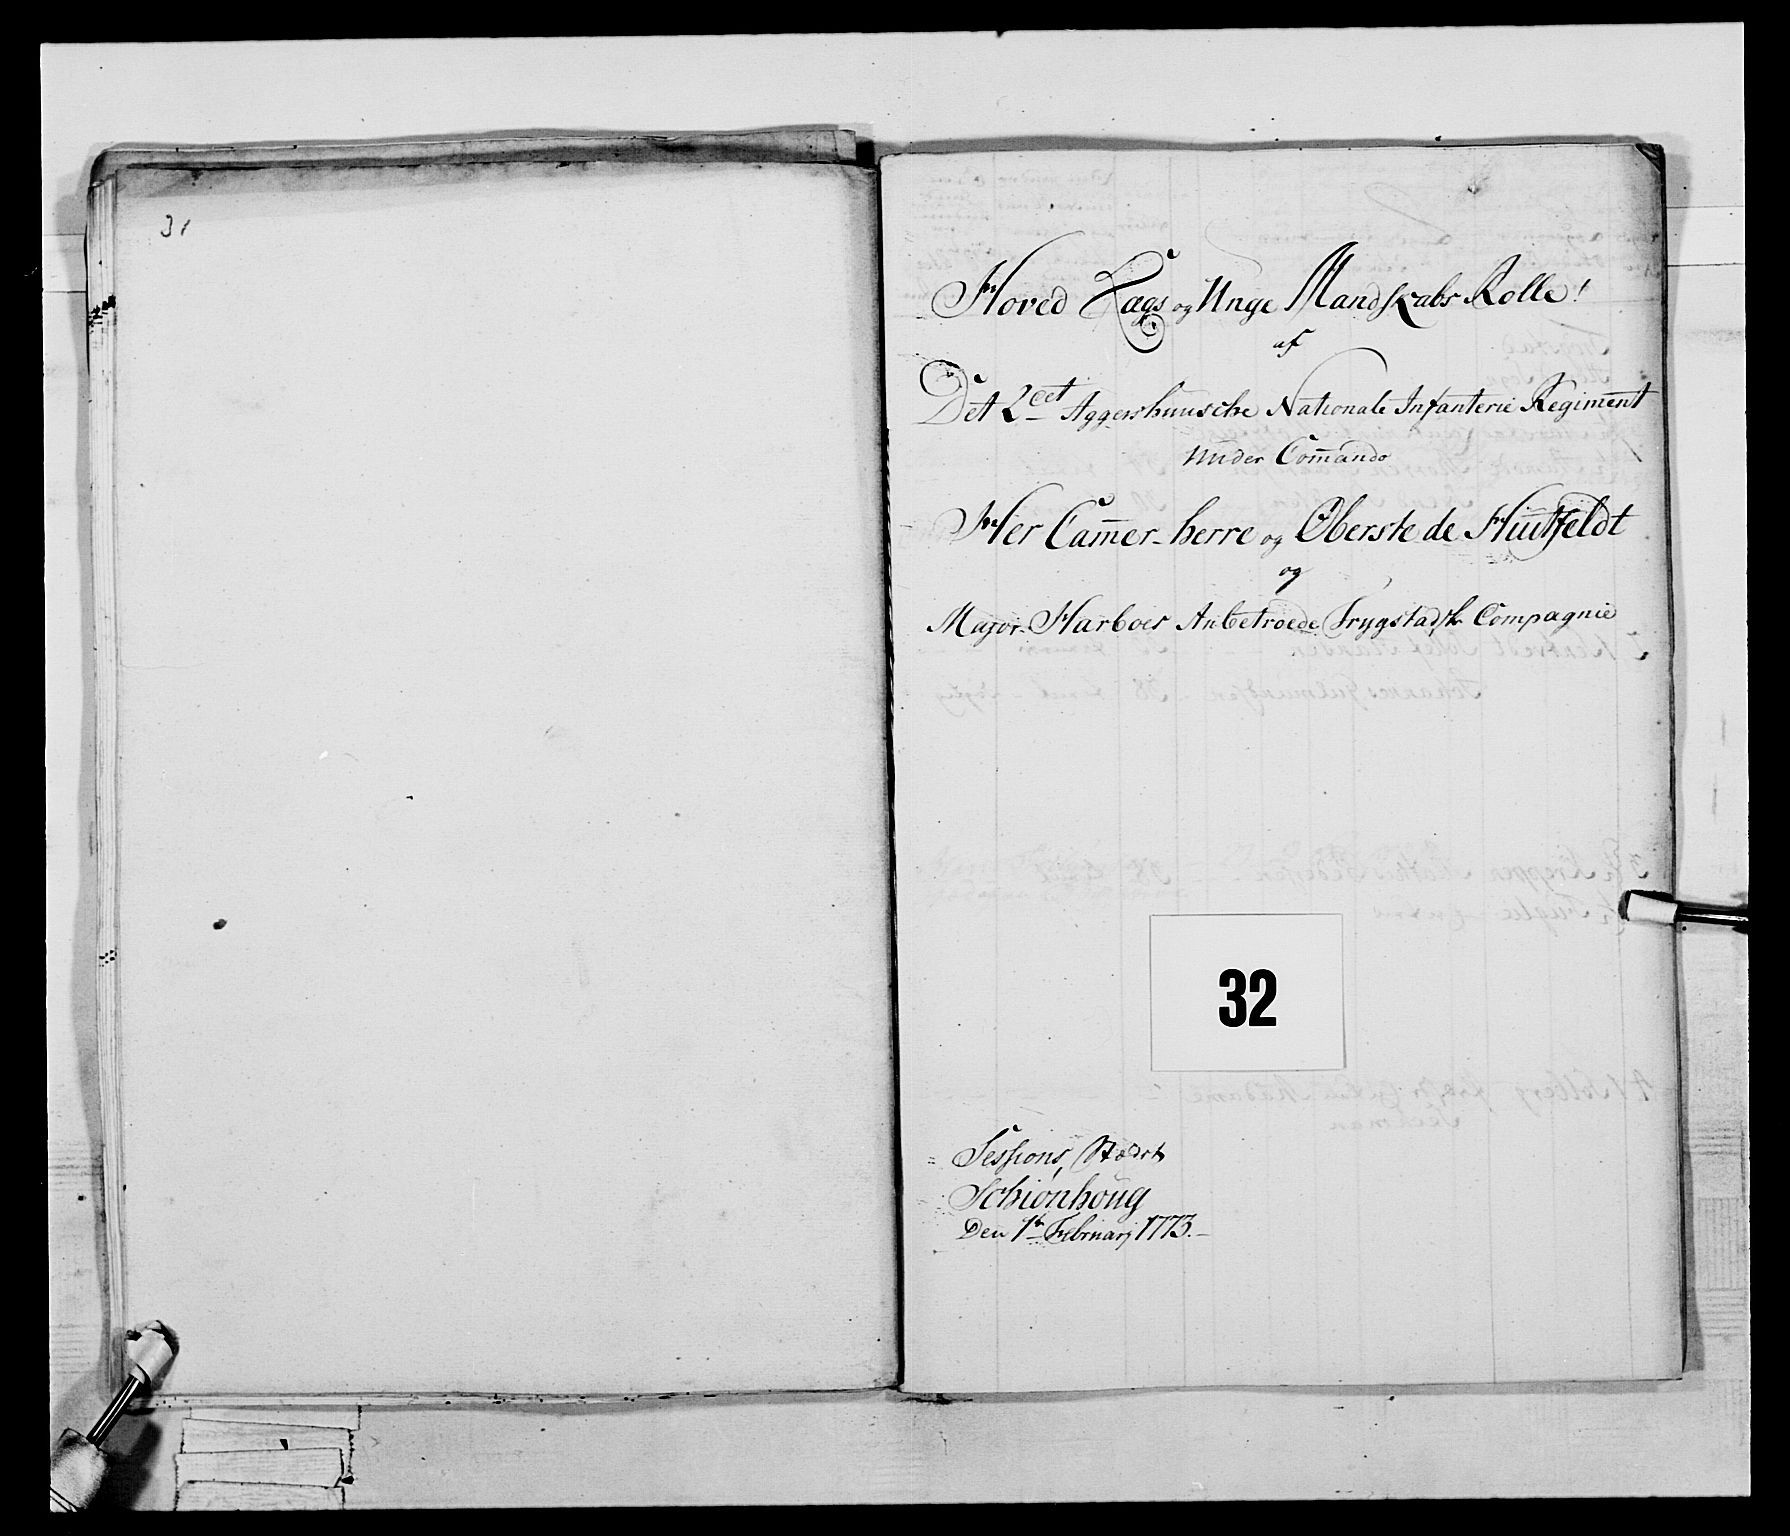 31
Hoved Lægs og Unge Mandskabs Rolle!
af
Det 2det Aggershuusche Nationale Infanterie Regiment
Under Com̄ando
Her Cam̄er-herre og Oberste de Huitfeldt
og
Major Harboes Anbetroede Trygstadsk Compagnie
32
Sessions Stædet
Schiønhoug
Den 1t Februarj 1773.